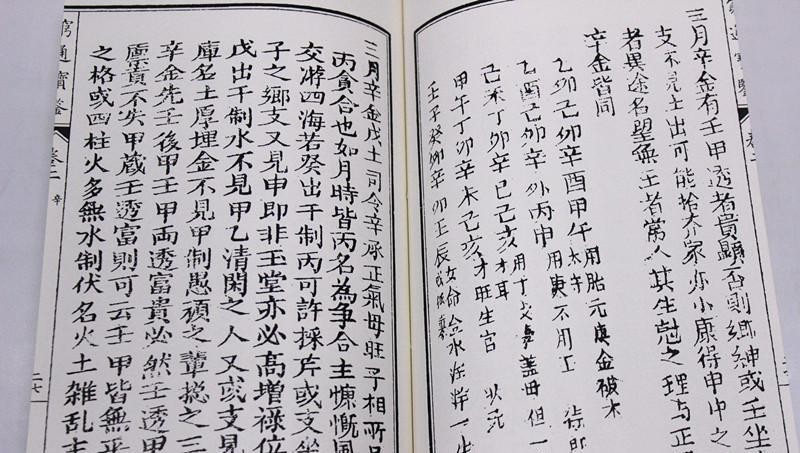 三月辛金有壬甲透者貴顯否則鄉紳或壬坐
支不見土出可能拾芥家亦小康得申中之
者異途名望無壬者常人其生尅之理與正
辛金皆同
乙卯己卯辛酉甲午 太守 用胎元庚金破木
乙卯己卯辛卯丙申 用庚不用丁
乙酉己卯辛
己未丁卯辛巳己亥 才旺生官
甲午丁卯辛未己亥
壬子癸卯辛卯壬辰 女命金水
三月辛金戊土司令辛承正氣母旺子相所
丙貪合也如月時皆丙名為爭合主慷慨風
交游四海若癸出干制丙可許採芹或支坐
子之鄉支又見申即非玉堂亦必高增祿位
戊出干制水不見甲乙清閑之人又或支見
庫名土厚埋金不見甲制愚頑之輩總之三
辛金先壬後甲壬甲兩透富貴必然壬透甲
廩貢不失甲藏壬透富則可云壬甲皆無平
之格或四柱火多無水制伏名火土雜乱主
窮通寶鑑
卷二
辛